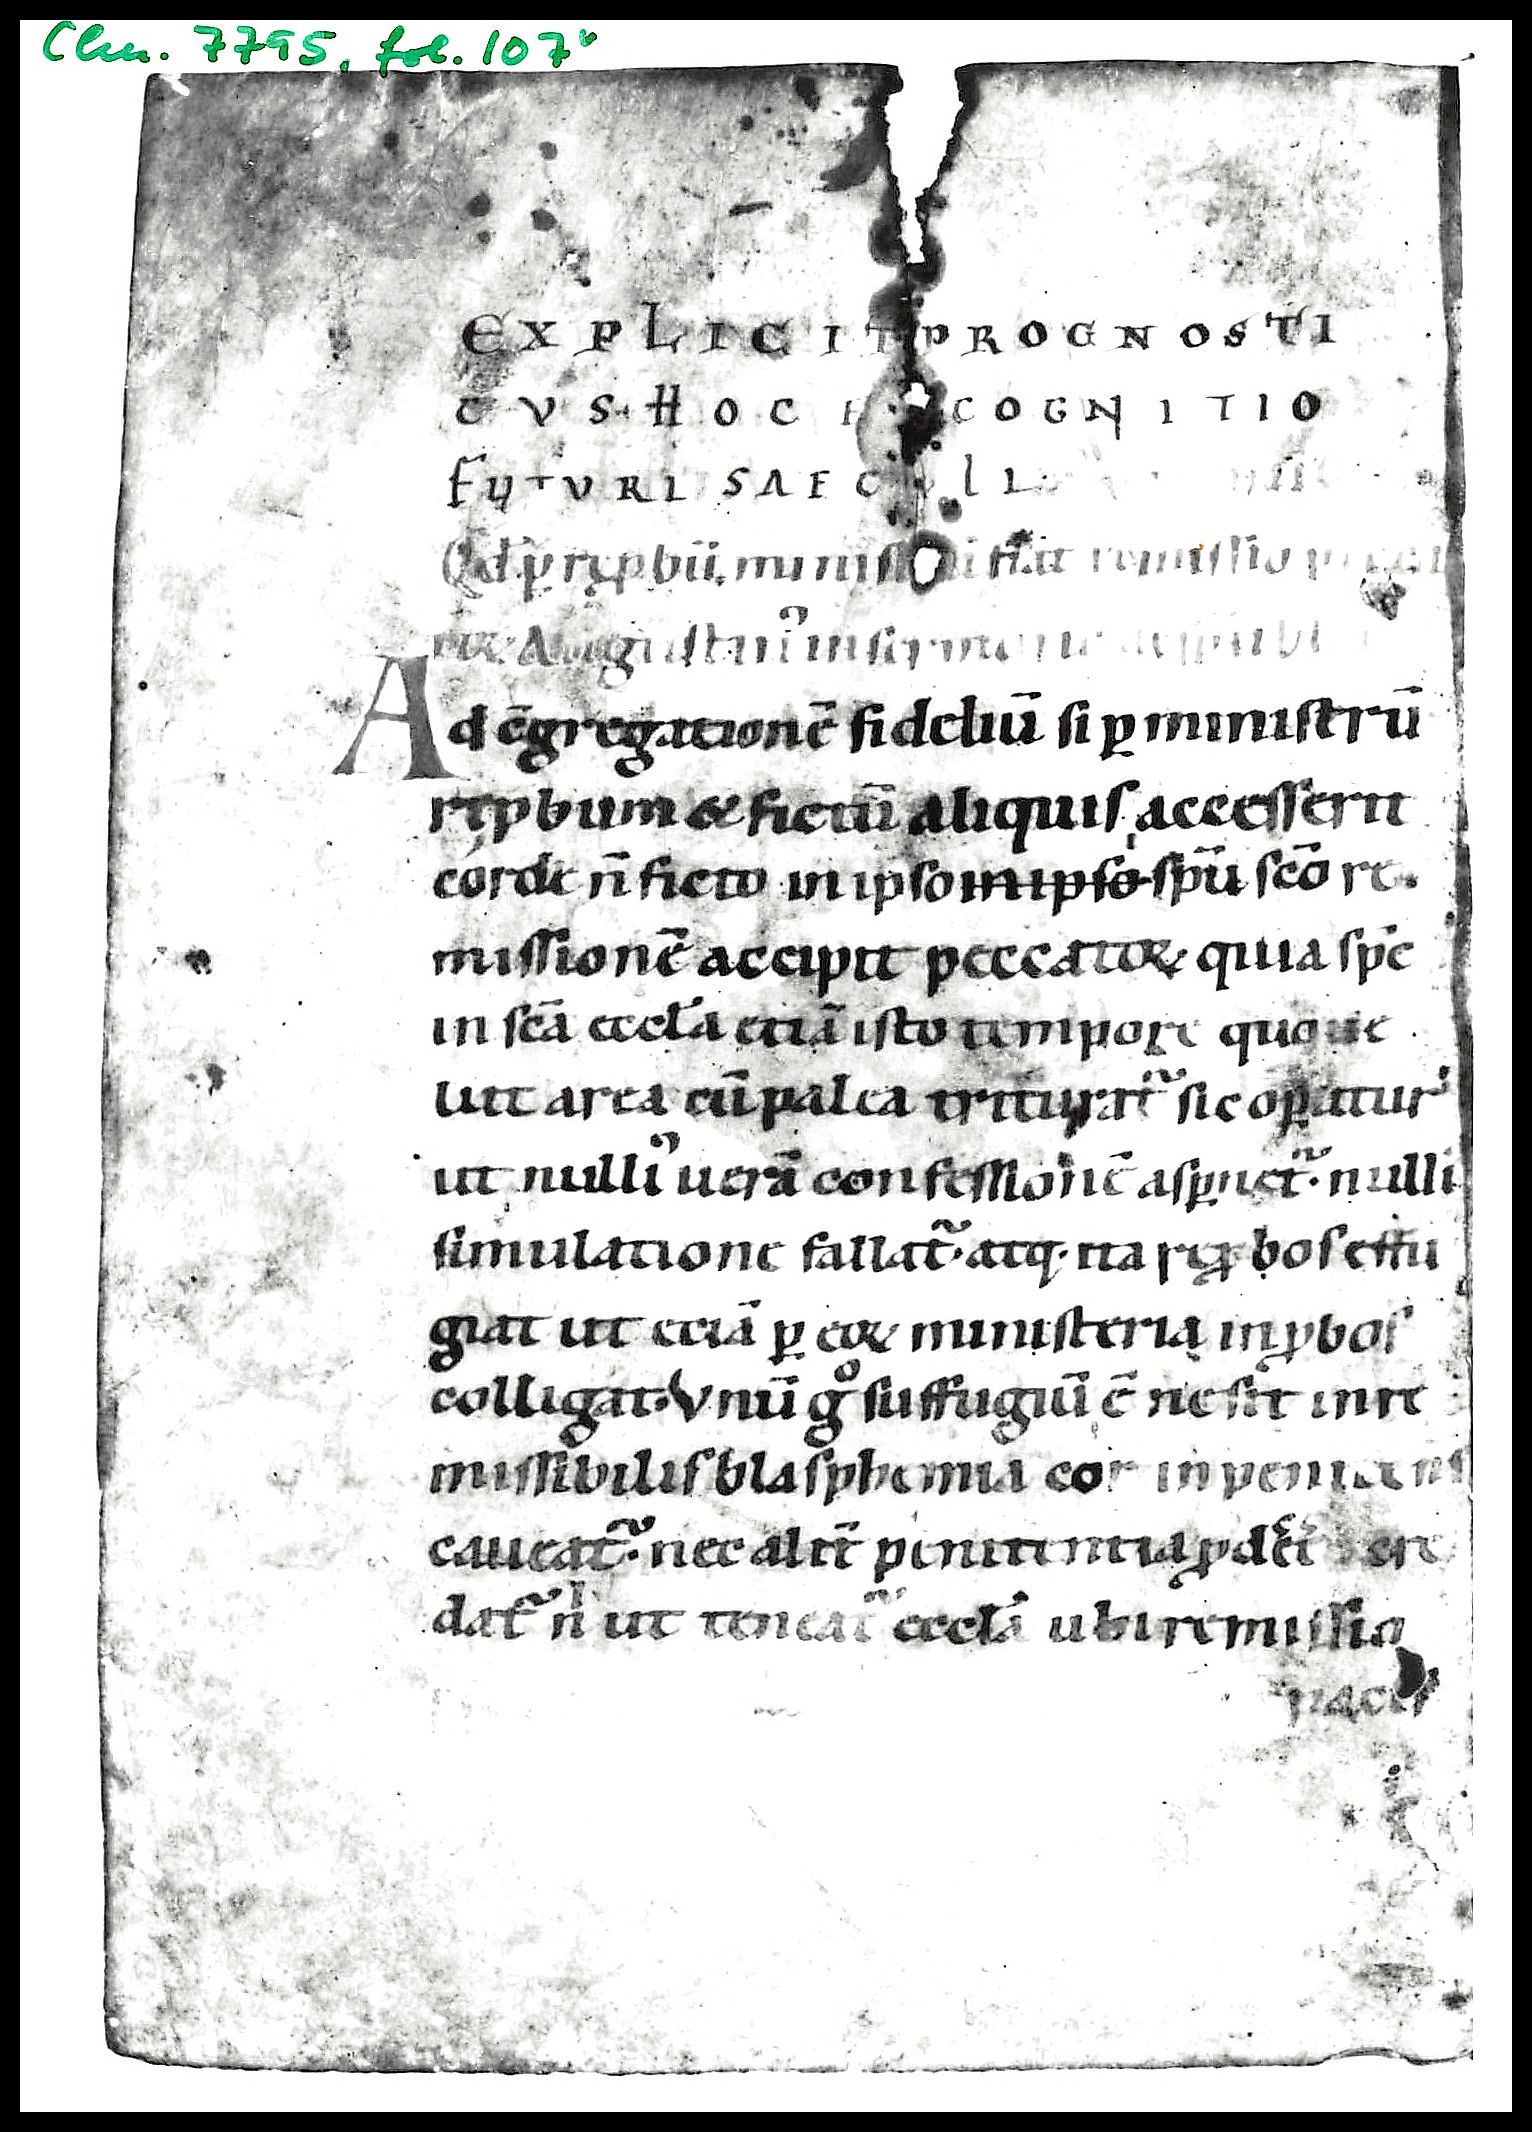 Clm. 7795, fol. 107v
EXPLICIT PROGNOSTI
CVS HOC E COGNITIO
FUTURI SAECULI
Qd p̱ rep̱bū minist fiat remissio
Augustin᾽ in sermone
Ad c̄gregationē fideliū si p̱ ministrū
rep̱bum & fictū aliquis accesserit
corde n̄ ficto in ipso in ipso sp̄u sc̄o re
missionē accipit peccatoꝝ quia sp̄c
in sc̄a eccl̄a etiā isto tempore quo ue
lut area cū palea triturat᷑ sic operatur
ut nulli᾽ uerā confessionē asp̱net᷑· nulli᾽
simulatione fallat᷑· atq· ita rep̱bos effu
giat ut etiā p̱ eoꝝ ministeria inp̱bos
colligat· Vnū gͦ suffugiū ē ne sit inre
missibilis blasphemia cor inpenitens
caueat᷑· nec alit̄ penitentia p̱d cre
dat᷑ n̄ ut teneat᷑ eccl̄a ubi remissio